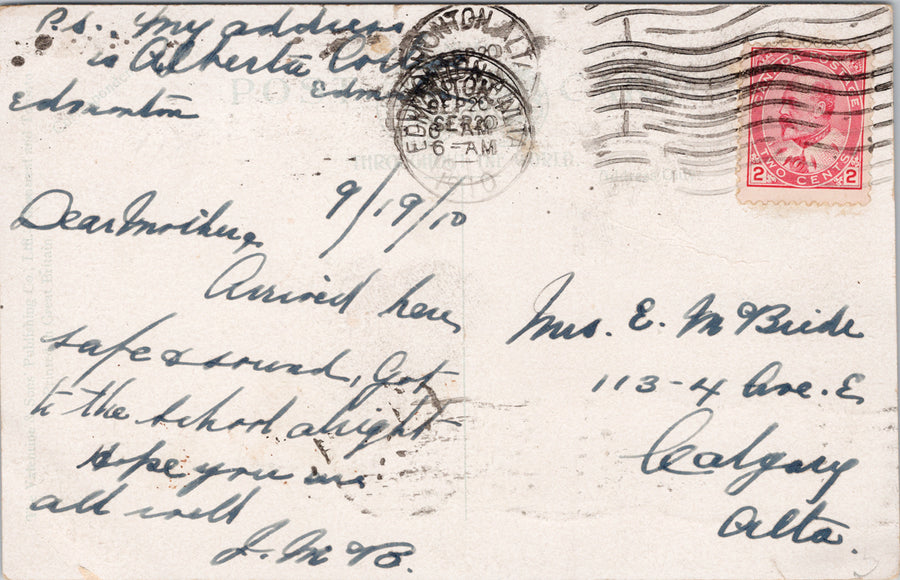 P.s. My address
is Alberta College
Edmonton
EDMONTON ALTA
SEP 20
6-AM
1910
CANADA POSTAGE
2 TWO CENTS 2
POST
THROUGHOUT THE WORLD
9/19/10
Dear Mother,
Arrived here
safe & sound, Got
to the school alright
Hope you are
all well
J. McB.
Mrs. E. McBride
113-4 Ave. E.
Calgary
Alta.
Valentine & Sons Publishing Co., Ltd.
Great Britain